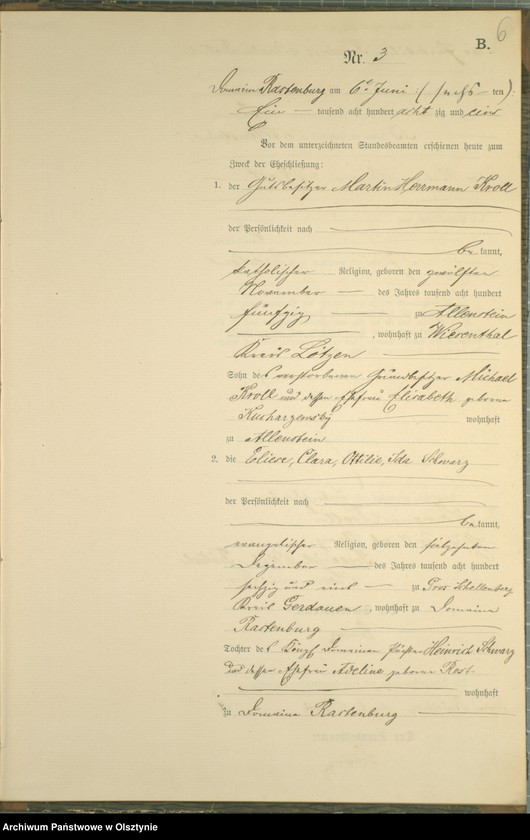 6
B.
Nr. 3
Domaine Rastenburg am 6t Juni (sechs ten)
Ein tausend acht hundert acht zig und eins
Vor dem unterzeichneten Standesbeamten erschienen heute zum
Zweck der Eheschließung:
1. der Gutsbesitzer Martin Herrmann Kroll
der Persönlichkeit nach
be kannt,
katholischer Religion, geboren den zwölften
November des Jahres tausend acht hundert
fünfzig zu Allenstein
, wohnhaft zu Wiesenthal
Kreis Lötzen
Sohn des verstorbenen Grundbesitzer Michael
Kroll und dessen Ehefrau Elisabeth geborene
wohnhaft
zu Allenstein
2. die Eliese, Clara, Ottilie, Ida Schwarz
der Persönlichkeit nach
be kannt,
evangelischer Religion, geboren den
Dezember des Jahres tausend acht hundert
sechzig und eins zu Gross Schellenberg
Kreis Gerdauen, wohnhaft zu Domaine
Rastenburg
Tochter des Königl. Domainen Pächter Heinrich Schwarz
und dessen Ehefrau Adeline geborene Rost
wohnhaft
zu Domaine Rastenburg
Archiwum Państwowe w Olsztynie